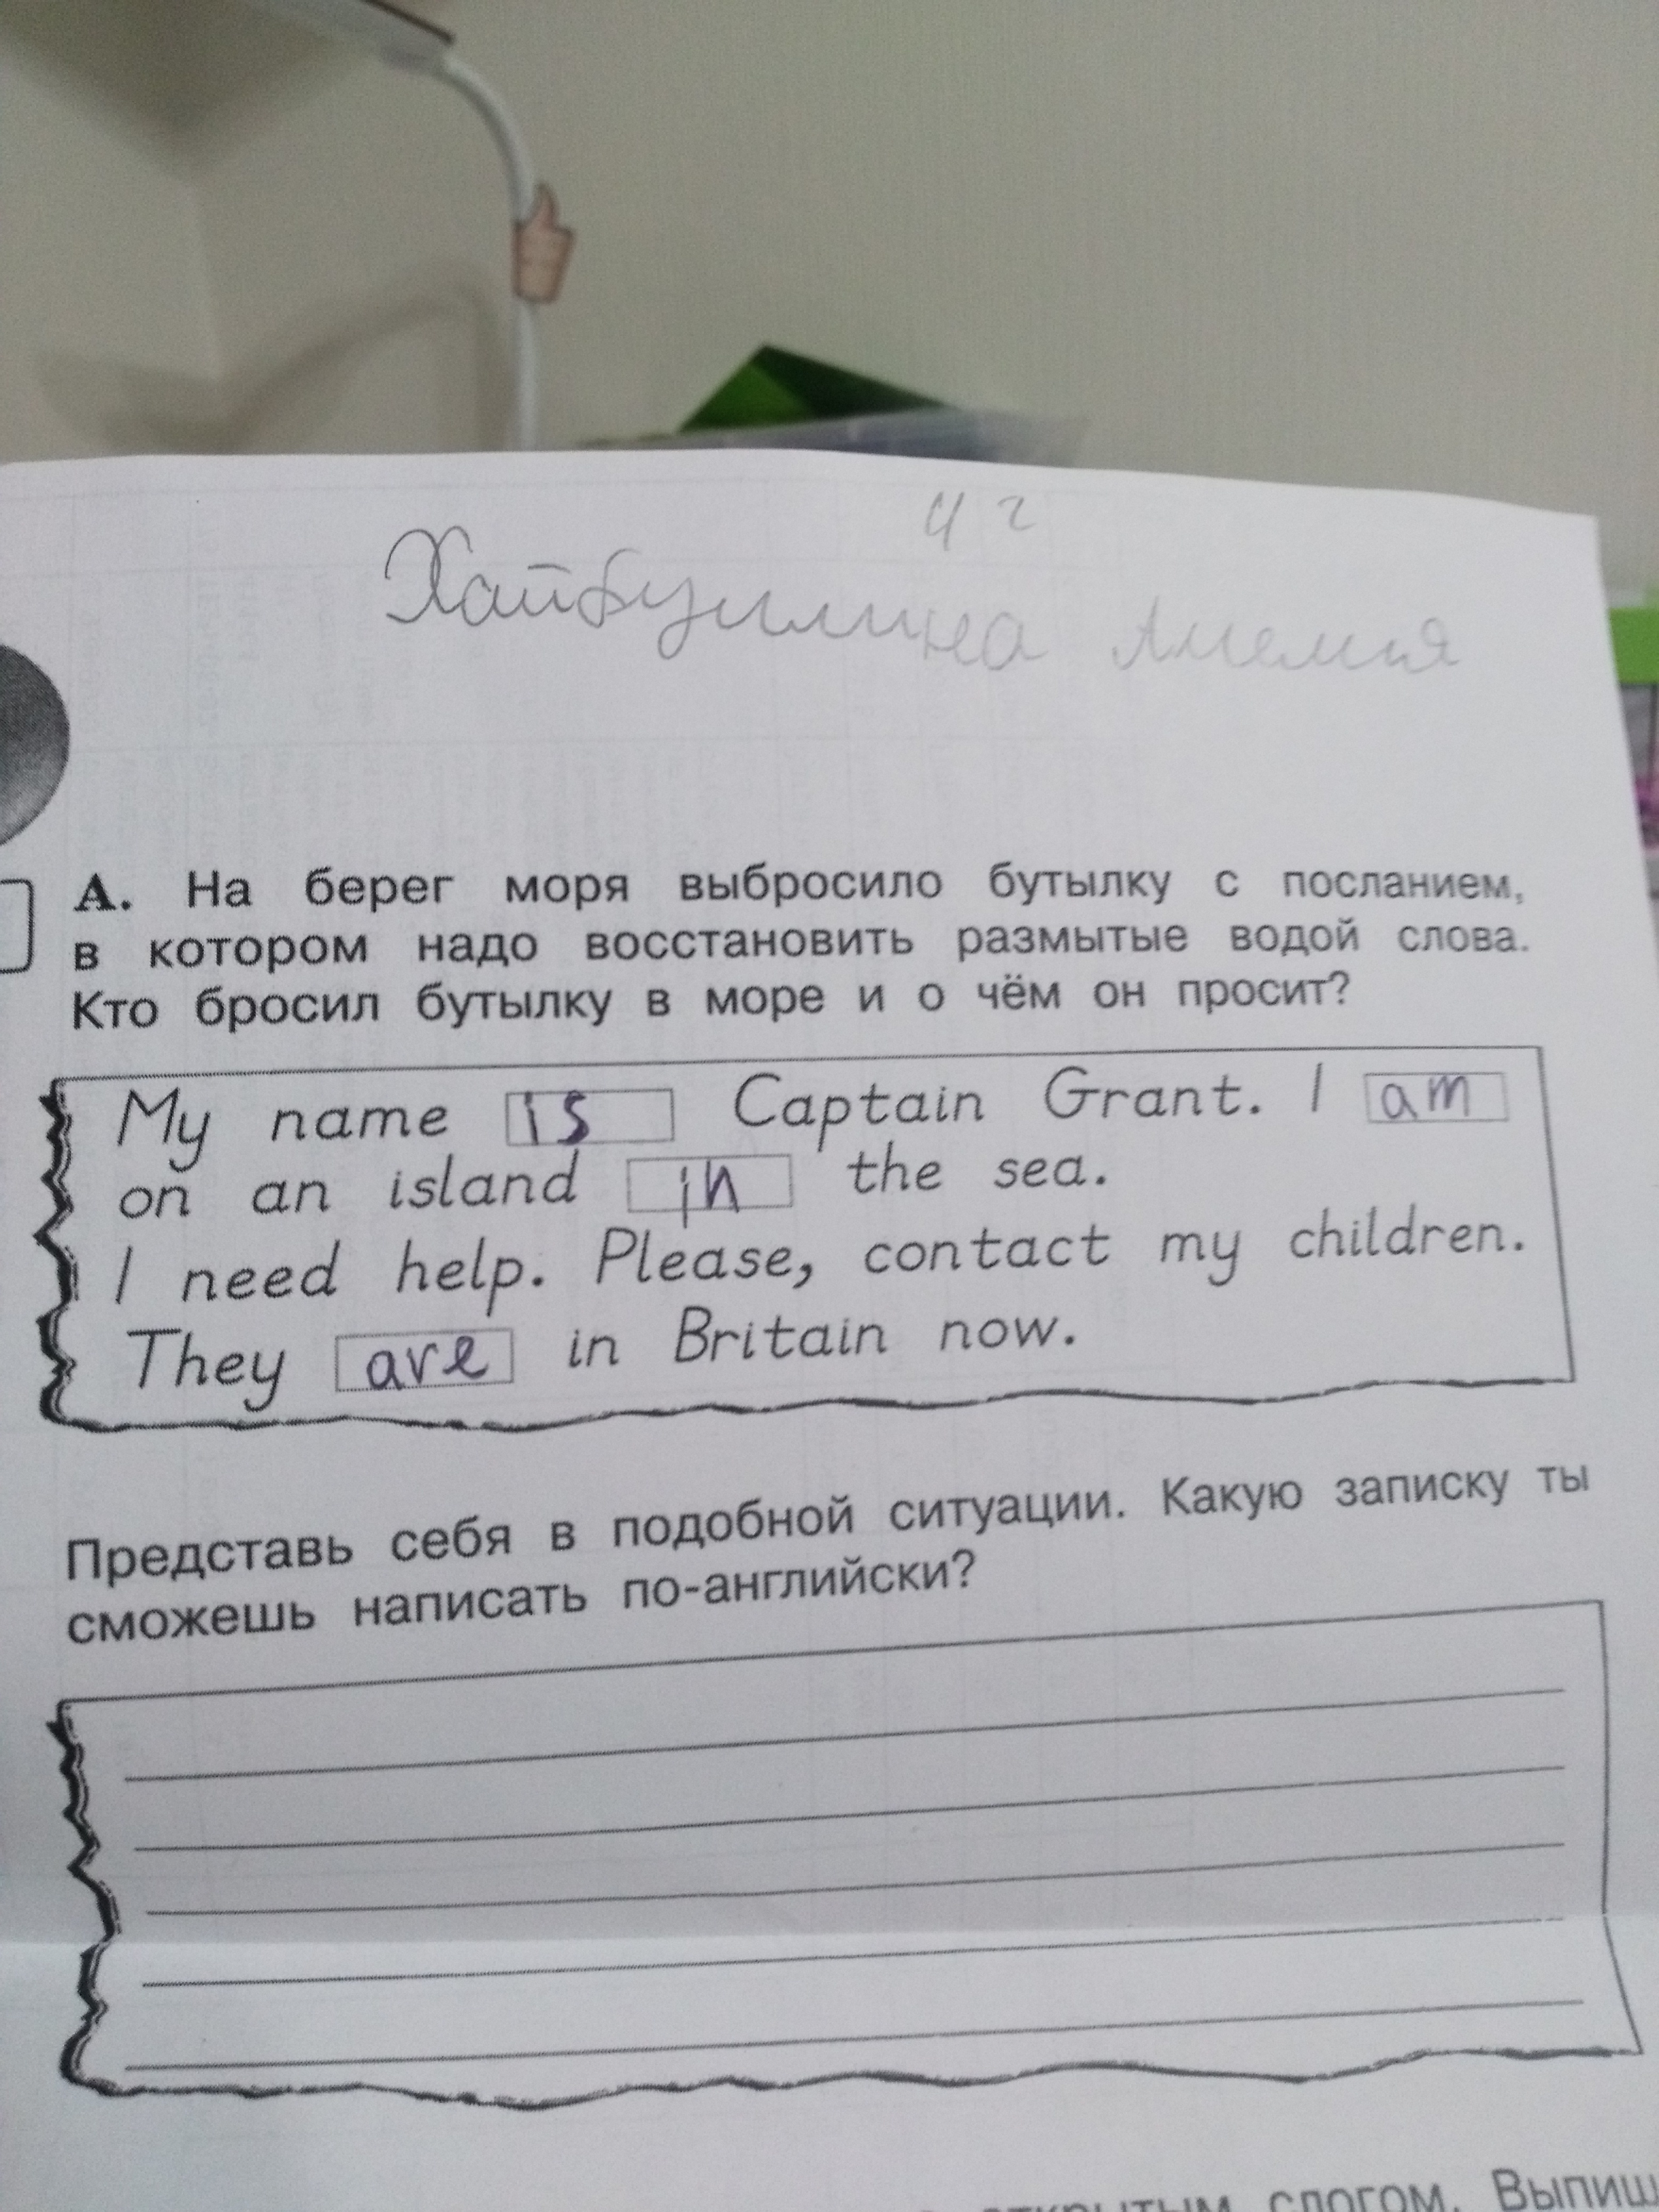 4 г
Хайбуллина Амелия
А. На берег моря выбросило бутылку с посланием,
в котором надо восстановить размытые водой слова.
Кто бросил бутылку в море и о чём он просит?
My name is Captain Grant. I am
on an island in the sea.
I need help. Please, contact my children.
They are in Britain now.
Представь себя в подобной ситуации. Какую записку ты
сможешь написать по-английски?
открытым слогом. Выпиш